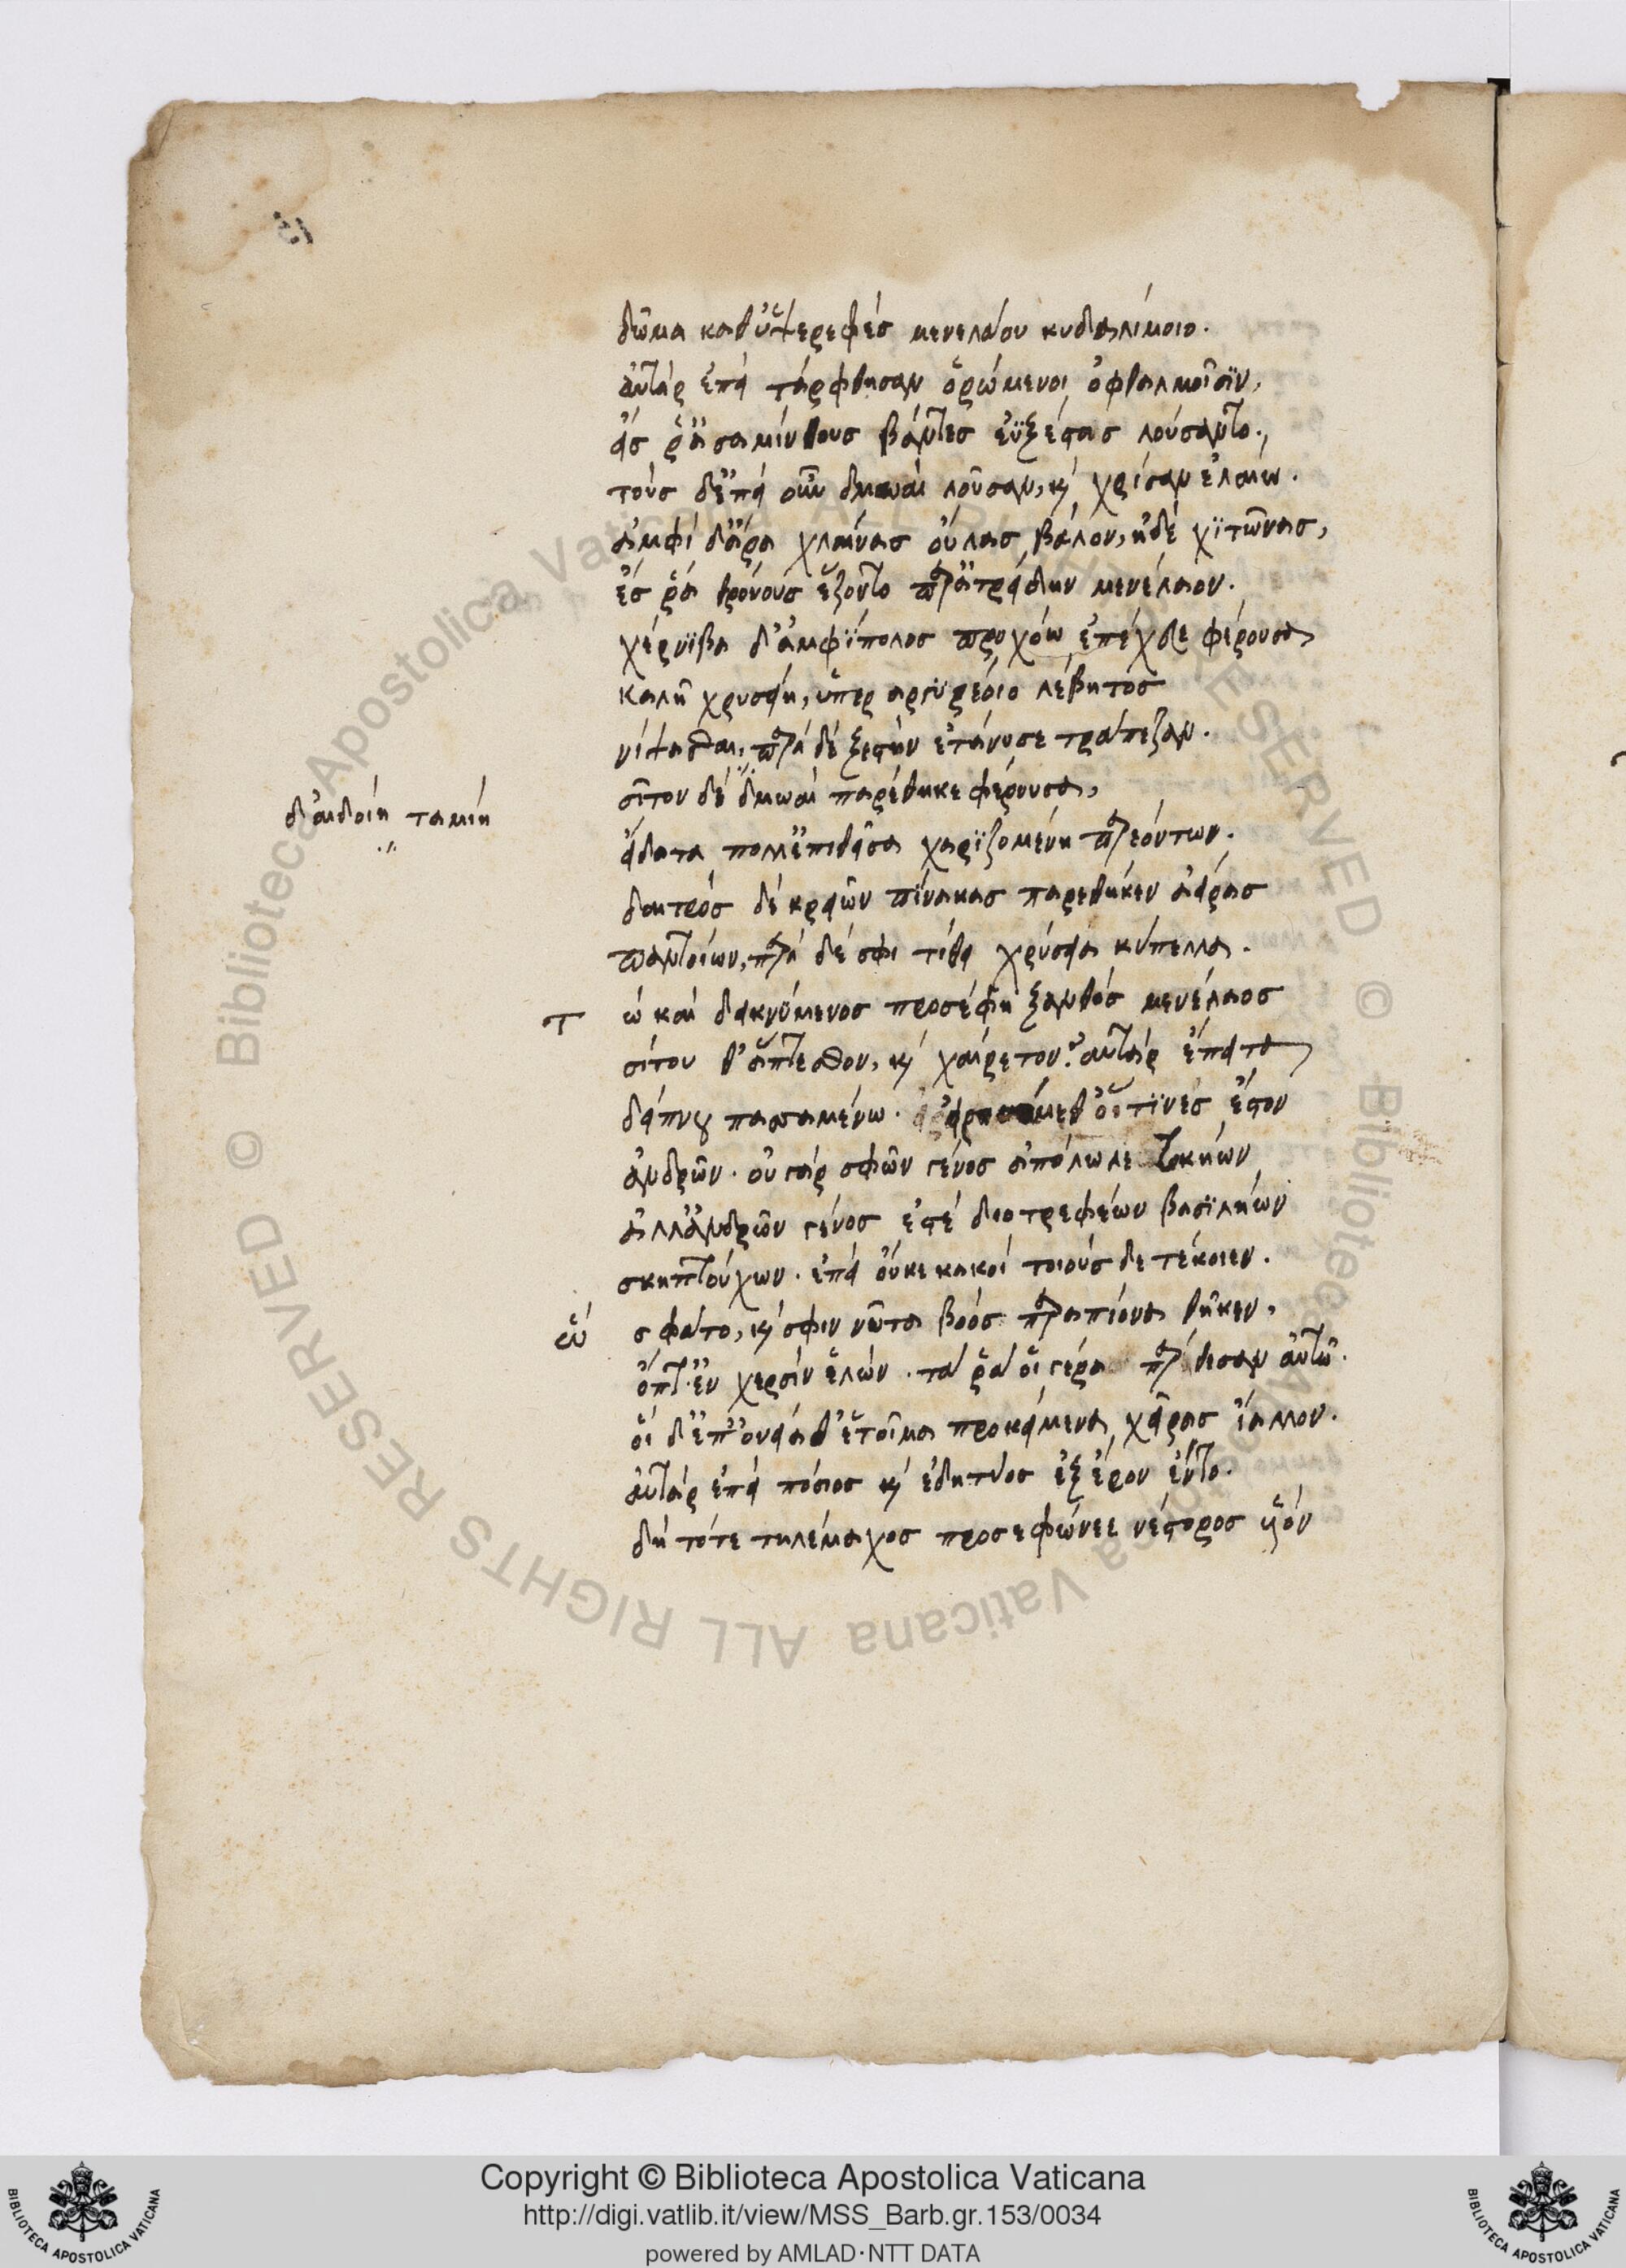 δῶμα καθ' ὑψερεφές μενελάου κυδαλίμοιο.
αὐτάρ ἐπεί τάρφθησαν ὁρώμενοι ὀφθαλμοῖσϊν,
ἔς ῥ' ἀσαμίνθους βάντες ἐϋξέστας λούσαντο.,
τούς δ' ἐπεί οὖν δμωαί λοῦσαν, κ' χρίσαν ἐλαίω.
ἀμφί δ' ἄρα χλαίνας οὔλας βάλον, ἠδέ χϊτῶνας,
ἐς ῥα θρόνους ἕζοντο παρ' ἀτρείδην μενέλαον.
χέρνϊβα δ' ἀμφϊπολος προχόω ἐπέχευε φέρουσα
καλῆ χρυσείη, ὑπερ αργϋρέοιο λέβητος
νίψασθαι, παρά δέ ξεστήν ἐτάνυσε τράπεζαν.
σῖτον δέ δμωαί παρέθηκε φέρουσα,
δ' αἰδοίη ταμίη
εἴδατα πολλ' ἐπιθεῖσα χαρϊζομένη παρεόντων.
δαιτρός δέ κρειῶν πίνακας παρεθήκεν ἀείρας
παντοίων, παρά δέ σφι τίθει χρύσεια κύπελλα.
Τ ώ καί δεικνύμενος προσέφη ξανθός μενέλαος
σίτου θ' ἅπτεσθον, κ' χαίρετον. αὐτάρ ἔπειτα
δείπνου πασσαμένω. εἰρησόμεθ' οἵ τϊνές ἐστον
ἀνδρῶν. οὐ γάρ σφῶν γένος ἀπόλωλε τοκήων
ἀλλ' ἀνδρῶν γένος ἐστέ διοτρεφέων βασϊλήων
σκηπτούχων. ἐπεί οὔκε κακοί τοιούς δε τέκοιεν.
ὣ ς φάτο, κ' σφιν νῶτα βοός παρα πίονα θῆκεν,
ὄπτ' ἐν χερσίν ἑλών. τά ῥά οἱ γέρα παρθεσαν αὐτῶ.
οἱ δ' ἐπ' ὀνείαθ' ἑτοῖμα προκείμενα χεῖρας ἴαλλον.
αὐτάρ ἐπεί πόσιος κ' ἐδητύος ἐξ ἔρον ἕντο.
δή τότε τηλέμαχος προσεφώνεε νέστορος υἱόν
Copyright © Biblioteca Apostolica Vaticana
http://digi.vatlib.it/view/MSS_Barb.gr.153/0034
powered by AMLAD·NTT DATA